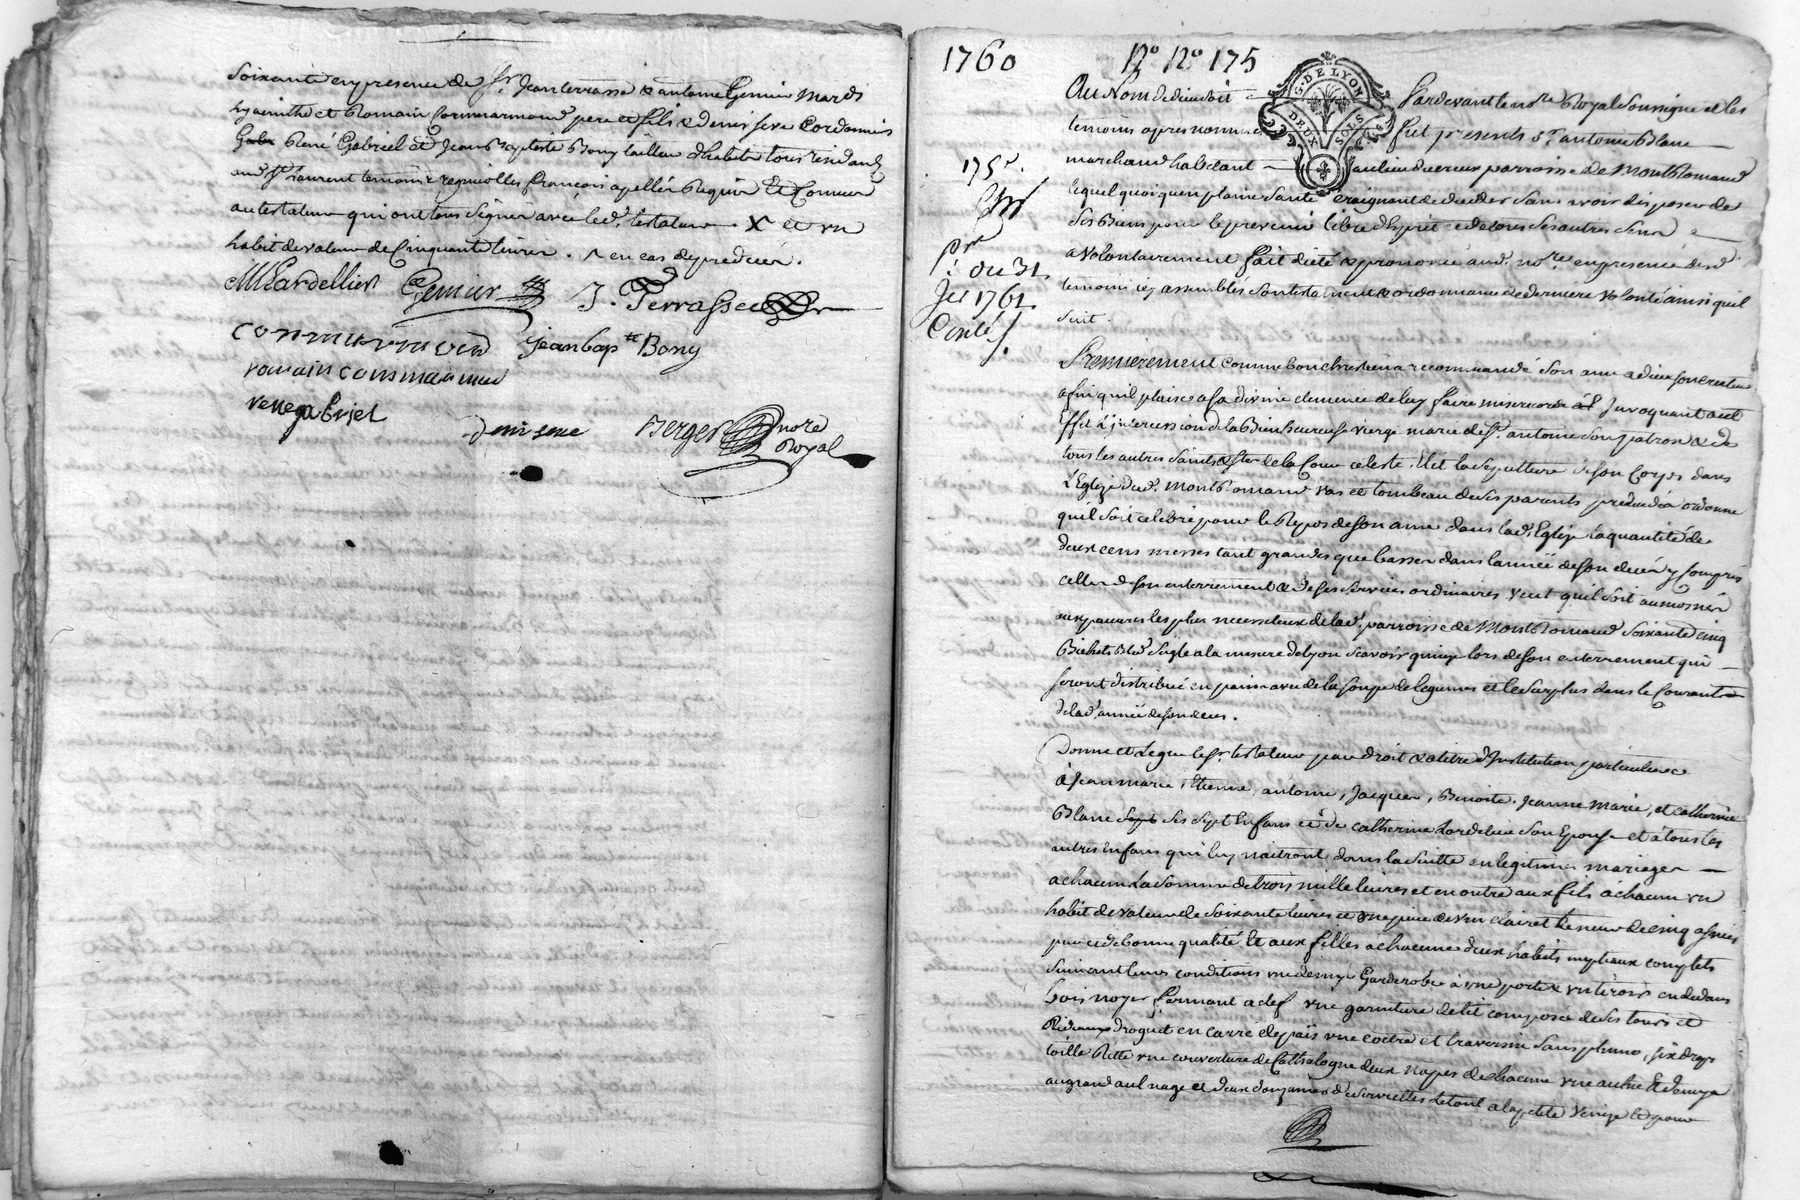 Soixante en presence de Sr. Jean terrasse & antoine Gemier mards
hyacinthe et Romain pere et fils & denis seve Cordonniers
René Gabriel et Jean Baptiste Bony tailleur d'habits tous
St. Laurent temoins françois apellés Requis Et Connus
au testateur qui ont tous signés avec led. testateur X et un
habit de valeur de Cinquante livres . en cas de predeces .
Gemier J. Terrasse
jean bap te Bony
romain
rene gabriel
denis seve Berger nore
Royal
1760 No No 175
G. DE LYON
DEUX SOLS
Au Nom de dieu soit Pardevant le nore Royal soussigne et les
temoins apres nommés fut presents Sr. antoine Blanc
marchand habitant au lieu du creux parroisse de Montromand
lequel quoique en plaine santé craignant de deceder sans avoir disposer de
ses Biens pour le prevenir libre d'esprit & de tous ses autres sens
a Volontairement fait dicté & prononcé aud. nore en presence desd.
temoins icy assemblés son testament & ordonnance de derniere volonté ainsi quil
suit .
175
du 31
1761
Conté
Premierement Comme bon chrestien a recommandé son ame a dieu son createur
afin quil plaise a sa divine clemence de luy faire misericorde Invoquant a cet
Effet L'intercession de la Bienheureuse vierge marie de St. antoine son patron & de
tous les autres saints & stes de la Cour celeste . Elit la sepulture de son Corps dans
L'Eglize dud. Montromand Vas et tombeau de ses parents predecedés ordonne
quil soit celebré pour le Repos de son ame dans lad. Eglize la quantité de
deux cens messes tant grandes que basses dans l'année de son decés y Compris
celles de son enterrement & de ses services ordinaires veut quil soit aumosnés
aux pauvres les plus necessiteux de lad. parroisse de Montromand soixante cinq
Bichets Bled seigle a la mesure de lyon scavoir quinze lors de son enterrement qui
seront distribué en pain avec de la soupe de legumes et le surplus dans le Courant
de lad. année de son deces .
Donne et Legue le sr. testateur par droit & a titre d'Institution particuliere
à Jean marie , Etienne , antoine , Jacques , Benoite , Jeanne Marie , et catherine
Blanc ses sept Enfans et de catherine son Epouse et à tous les
autres Enfans qui luy naitront dans la suitte en legitimes mariages
a chacun La somme de trois mille livres et en outre aux fils à chacun un
habit de valeur de soixante livres et une piece de vin clairet teneur de cinq asnées
pur et de bonne qualité Et aux filles a chacune deux habits nuptiaux complets
suivant leurs conditions une demy Garderobe à une porte & un tiroir en dedans
bois noyer fermant a clef une garniture de lit composée de ses tours et
Rideaux droguet en carré de païs une coëtre et traversin sans plume , six draps
toille Ritte une couverture de Cathalogne deux napes de chacune une aulne Et demye
au grand aulnage et deux douzaines de serviettes Le tout a la petite Venize Et pour